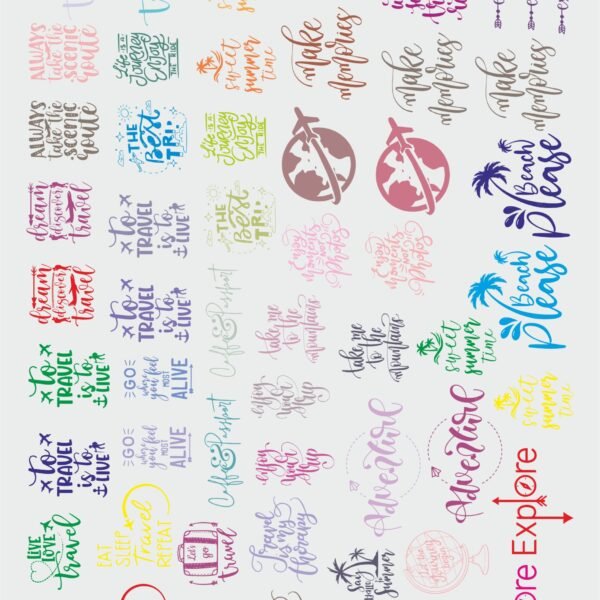 ALWAYS
take the
SCENIC
route
Life is a
Journey
Enjoy
THE RIDE
sweet
summer
time
make
memories
make
memories
make
memories
ALWAYS
take the
SCENIC
route
THE
Best
TRI
Life is a
Journey
Enjoy
THE RIDE
Beach
Please
dream
discover
travel
to
TRAVEL
is to
LIVE
THE
Best
TRI
Enjoy
moments
not
Photos
Enjoy
moments
not
Photos
Beach
Please
dream
discover
travel
to
TRAVEL
is to
LIVE
Coffee &
Passport
take me
to the
mountains
take me
to the
mountains
sweet
summer
time
to
TRAVEL
is to
LIVE
GO
where
you feel
MOST
ALIVE
enjoy
your
trip
sweet
summer
time
to
TRAVEL
is to
LIVE
GO
where
you feel
MOST
ALIVE
Coffee &
Passport
enjoy
your
trip
Adventure
Adventure
LIVE
LOVE
travel
EAT
SLEEP
Travel
REPEAT
Let's
go
travel
Travel
is my
therapy
Say
Hello
to
Summer
ore Explore